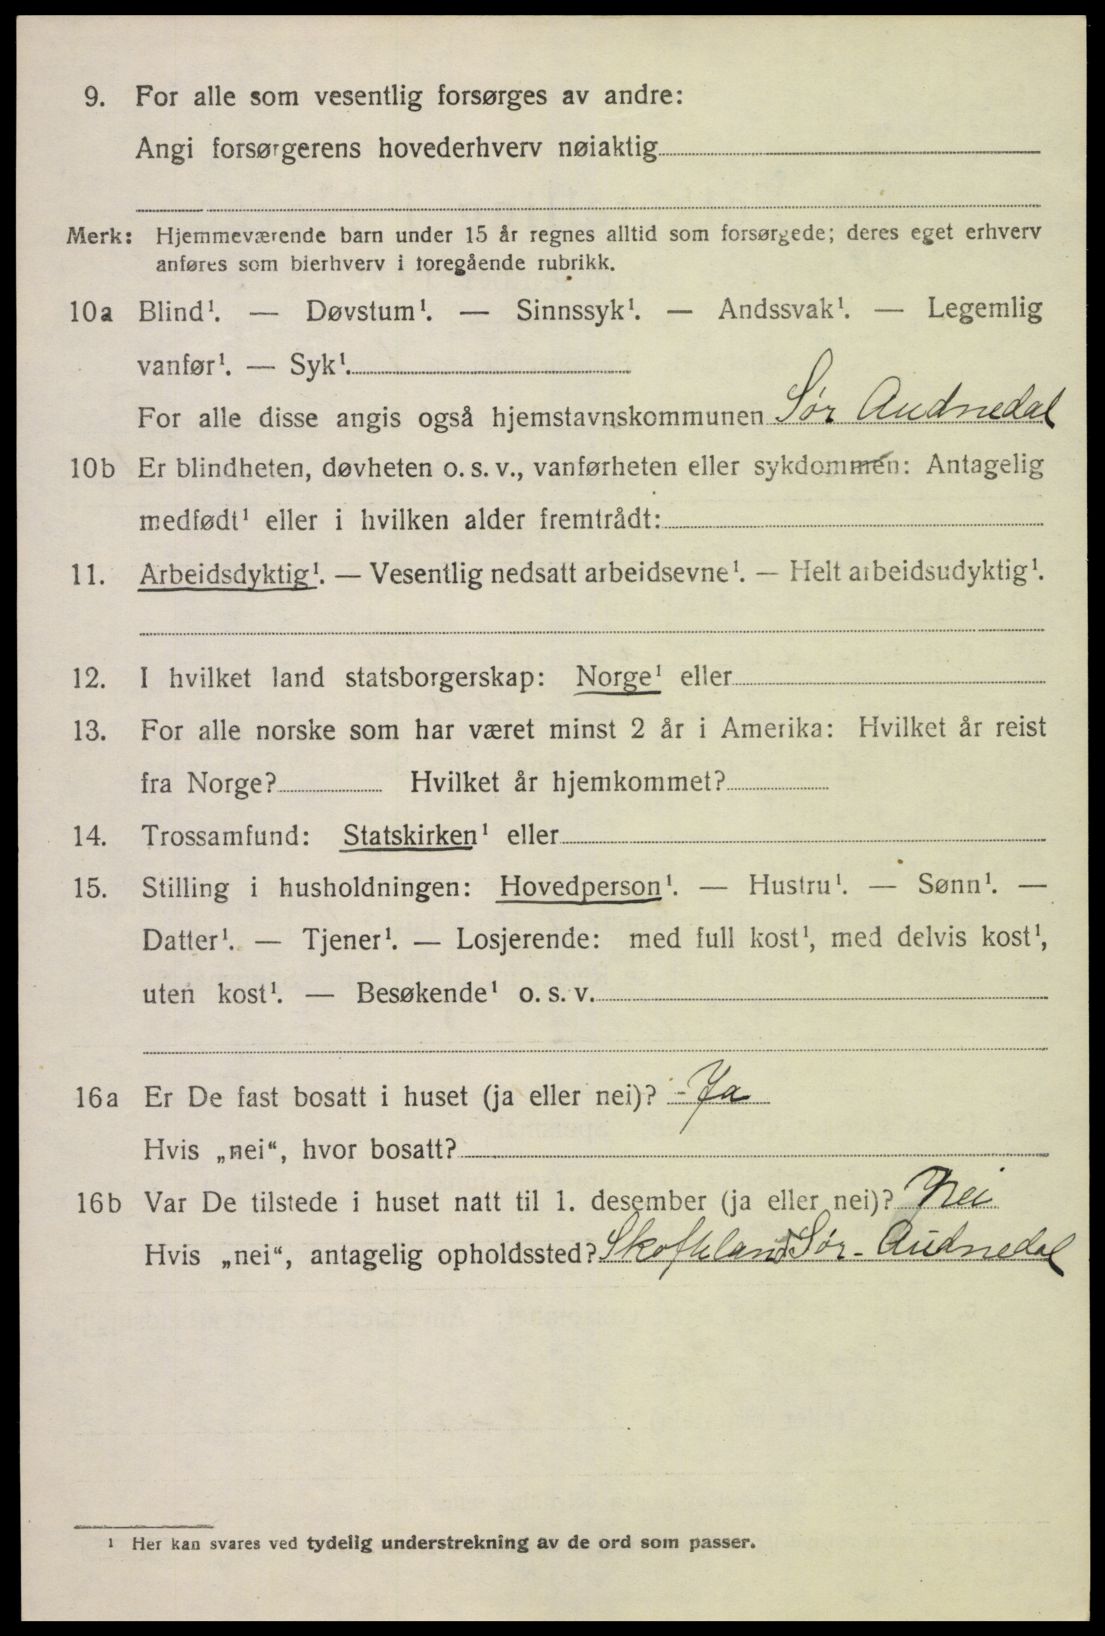 9. For alle som vesentlig forsørges av andre:
Angi forsørgerens hovederhverv nøiaktig
Merk: Hjemmeværende barn under 15 år regnes alltid som forsørgede; deres eget erhverv
anføres som bierhverv i foregående rubrikk.
10a Blind¹. — Døvstum¹. — Sinnssyk¹. — Andssvak¹. — Legemlig
vanfør¹. — Syk¹.
For alle disse angis også hjemstavnskommunen Sør Audnedal
10b Er blindheten, døvheten o. s. v., vanførheten eller sykdommen: Antagelig
medfødt¹ eller i hvilken alder fremtrådt:
11. Arbeidsdyktig¹. — Vesentlig nedsatt arbeidsevne¹. — Helt arbeidsudyktig¹.
12. I hvilket land statsborgerskap: Norge¹ eller
13. For alle norske som har været minst 2 år i Amerika: Hvilket år reist
fra Norge? Hvilket år hjemkommet?
14. Trossamfund: Statskirken¹ eller
15. Stilling i husholdningen: Hovedperson¹. — Hustru¹. — Sønn¹. —
Datter¹. — Tjener¹. — Losjerende: med full kost¹, med delvis kost¹,
uten kost¹. — Besøkende¹ o. s. v.
16a Er De fast bosatt i huset (ja eller nei)? - Ja
Hvis „nei“, hvor bosatt?
16b Var De tilstede i huset natt til 1. desember (ja eller nei)? Nei
Hvis „nei“, antagelig opholdssted? Skofteland Sør-Audnedal
¹ Her kan svares ved tydelig understrekning av de ord som passer.